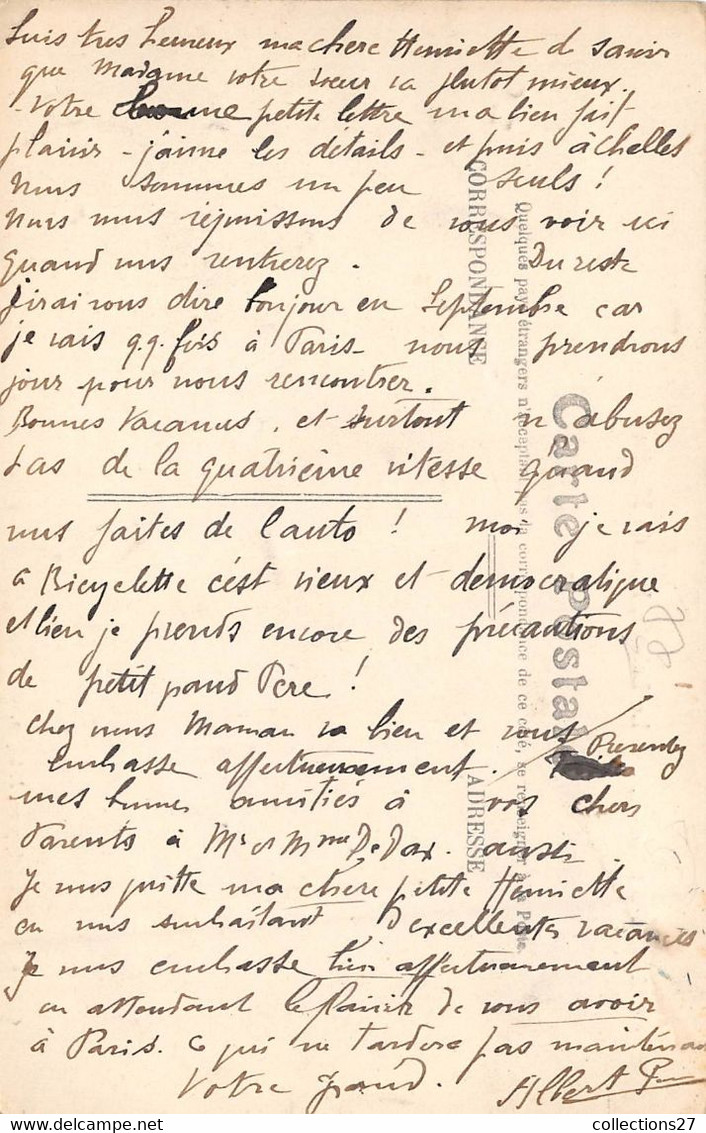 Suis tres heureux ma chere Henriette de savoir
que Madame votre soeur va plutot mieux.
- Votre petite lettre m'a bien fait
plaisir - j'aime les détails - et puis à Chelles
nous sommes un peu seuls !
nous nous réjouissons de vous voir ici
quand vous rentrerez. Du reste
j'irai vous dire bonjour en Septembre car
je vais q.q. fois à Paris - nous prendrons
jour pour nous rencontrer.
Bonnes Vacances, et surtout n'abusez
pas de la quatrième vitesse quand
vous faites de l'auto ! moi je vais
a Bicyclette c'est vieux et democratique
et bien je prends encore des précautions
de petit grand Pere !
chez nous Maman va bien et vous
embrasse affectueusement. Presentez
mes bonnes amitiés à vos chers
Parents à Mr et Mme De Dax. aussi
Je vous quitte ma chère petite Henriette
en vous souhaitant d'excellentes vacances
Je vous embrasse bien affectueusement
en attendant le plaisir de vous avoir
à Paris. Ce qui ne tardera pas maintenant
Votre grand. Albert
Carte Postale
Quelques pays étrangers n'acceptant pas la correspondance de ce côté, se renseigner à la Poste.
CORRESPONDANCE
ADRESSE
collections27